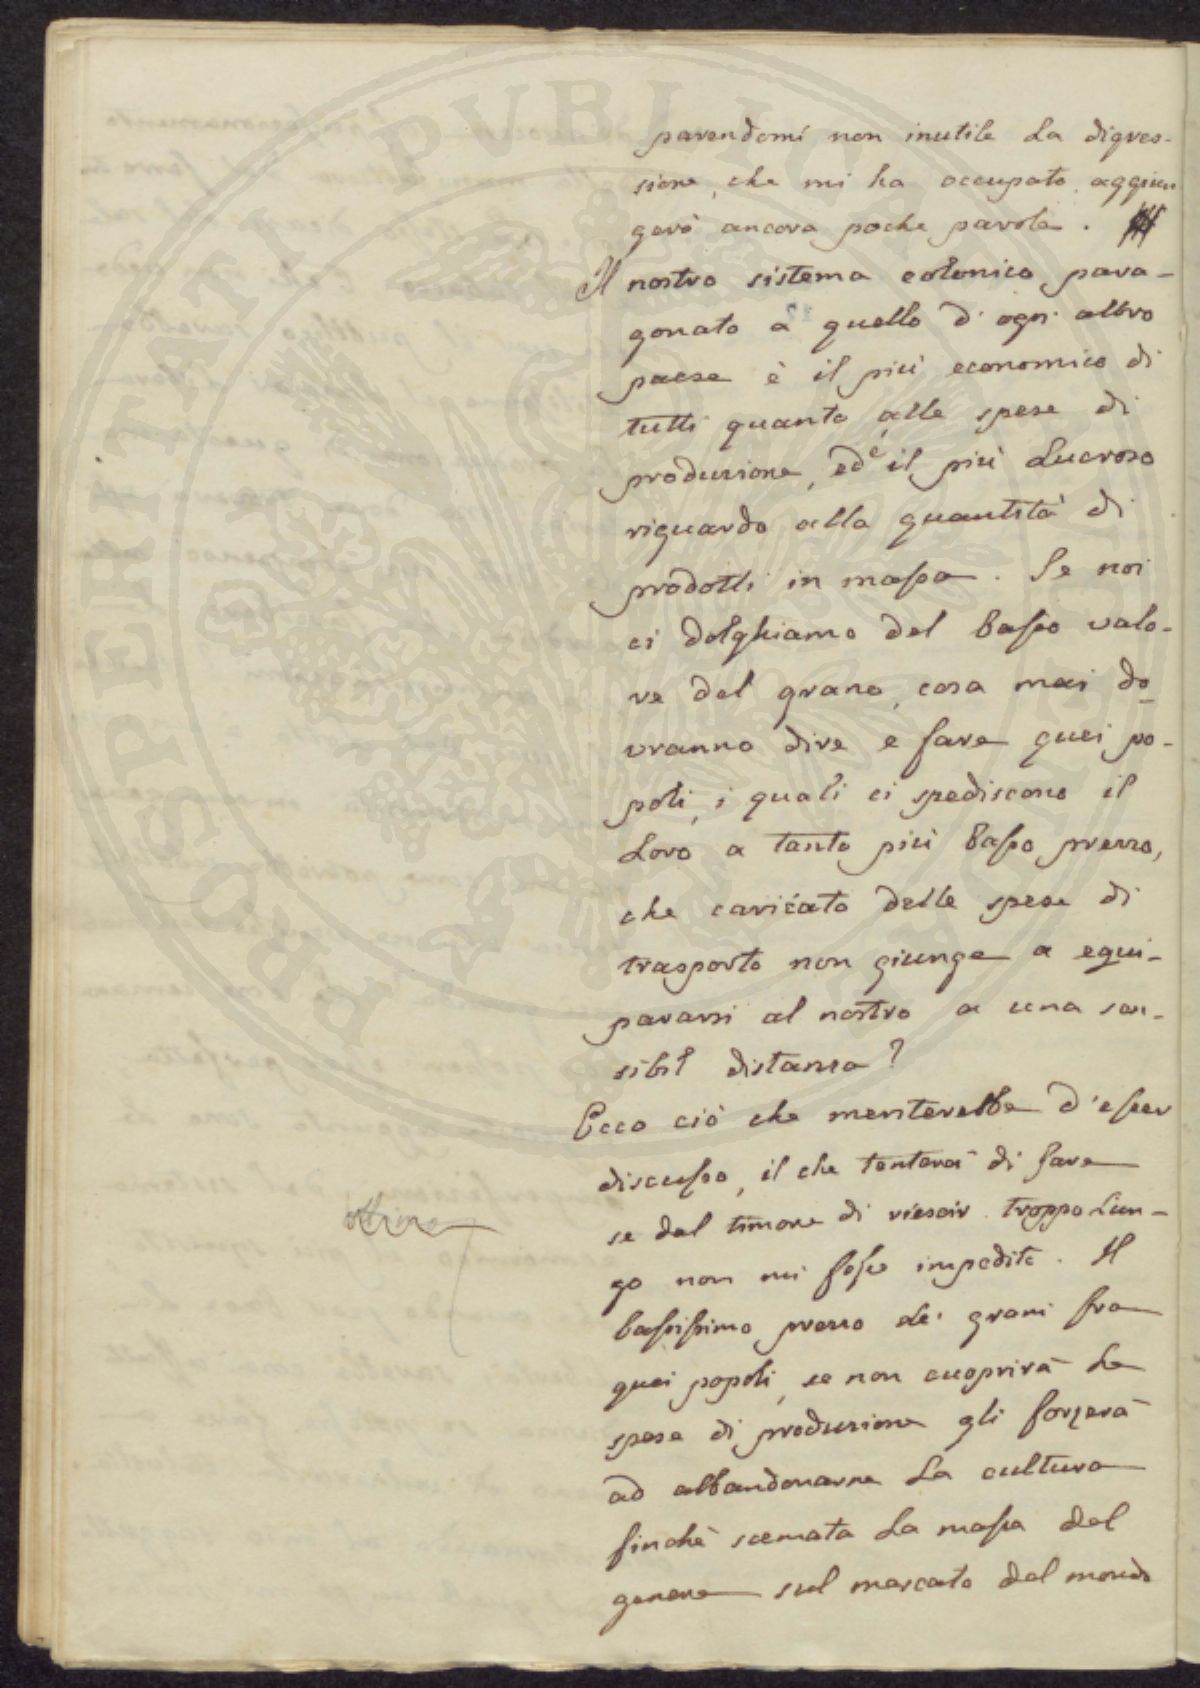 parendomi non inutile la digres-
sione, che mi ha occupato, aggiun
gerò ancora poche parole.
Il nostro sistema colonico para-
gonato a quello d'ogni altro
paese è il più economico di
tutti quanto alle spese di
produzione, ed è il più lucroso
riguardo alla quantità di
prodotti in massa. Se noi
ci dolghiamo del basso valo-
re del grano, cosa mai do-
vranno dire e fare quei po-
poli, i quali ci spediscono il
loro a tanto più basso prezzo,
che caricato delle spese di
trasporto non giunge a equi-
pararsi al nostro a una sen-
sibil distanza?
Ecco ciò che meriterebbe d'esser
discusso, il che tenterei di fare
se dal timore di riescir troppo lun-
go non mi fosse impedito. Il
bassissimo prezzo de' grani fra
quei popoli, se non cuoprirà le
spese di produzione gli forzerà
ad abbandonarne la cultura
finchè scemata la massa del
genere sul mercato del mondo
PROSPERITATI PVBLICAE